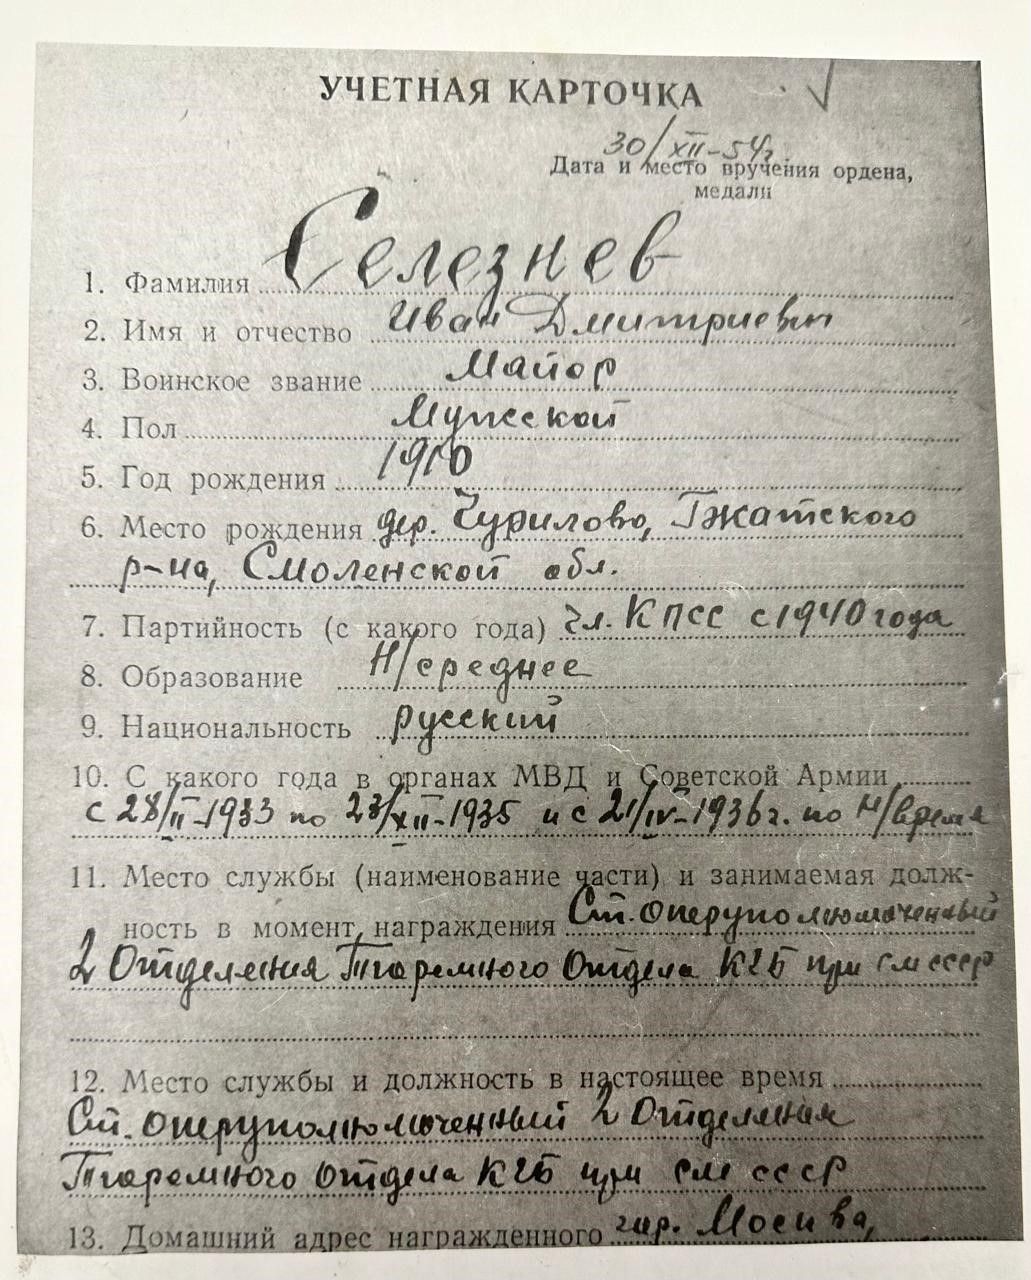 УЧЕТНАЯ КАРТОЧКА
30/XII-54г.
Дата и место вручения ордена,
медали
1. Фамилия Селезнев
2. Имя и отчество Иван Дмитриевич
3. Воинское звание Майор
4. Пол Мужской
5. Год рождения 1910
6. Место рождения дер. Чурилово, Гжатского
р-на, Смоленской обл.
7. Партийность (с какого года) чл. КПСС с 1940 года
8. Образование Н/среднее
9. Национальность русский
10. С какого года в органах МВД и Советской Армии
с 28/II-1933 по 23/XII-1935 и с 21/IV-1936г. по н/время
11. Место службы (наименование части) и занимаемая долж-
ность в момент награждения Ст. оперуполномоченный
2 Отделения Тюремного Отдела КГБ при СМ СССР
12. Место службы и должность в настоящее время
Ст. оперуполномоченный 2 Отделения
Тюремного отдела КГБ при СМ СССР
13. Домашний адрес награжденного гор. Москва,